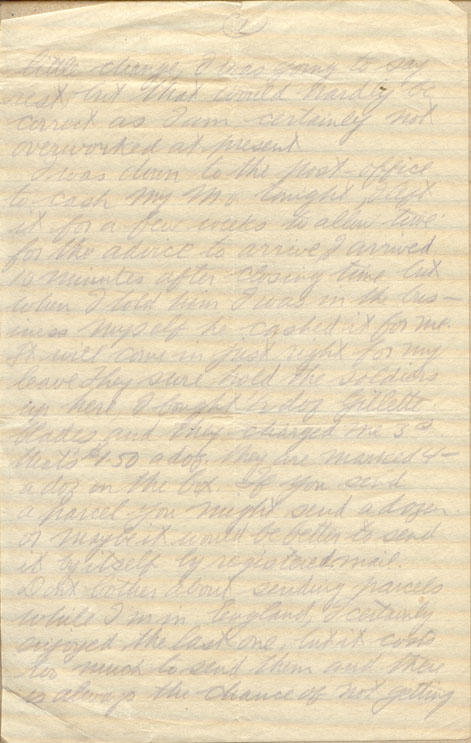 2
little change I was going to say
rest, but that would hardly be
correct as I am certainly not
overworked at present
I was down to the post-office
to cash my M.O. tonight, I left
it for a few weeks to allow time
for the advice to arrive, I arrived
10 minutes after closing time but
when I told him I was in the bus-
iness myself he cashed it for me.
It will come in just right for my
leave they sure hold the soldiers
up here I bought ½ doz Gillette
blades and they charged me 3
that's $1.50 a doz, they are marked
a doz on the box If you send
a parcel you might send a dozen
or maybe it would be better to send
it by itself by registered mail.
Dont bother about sending parcels
while I'm in England, I certainly
enjoyed the last one, but it costs
too much to send them and there
is always the chance of not getting